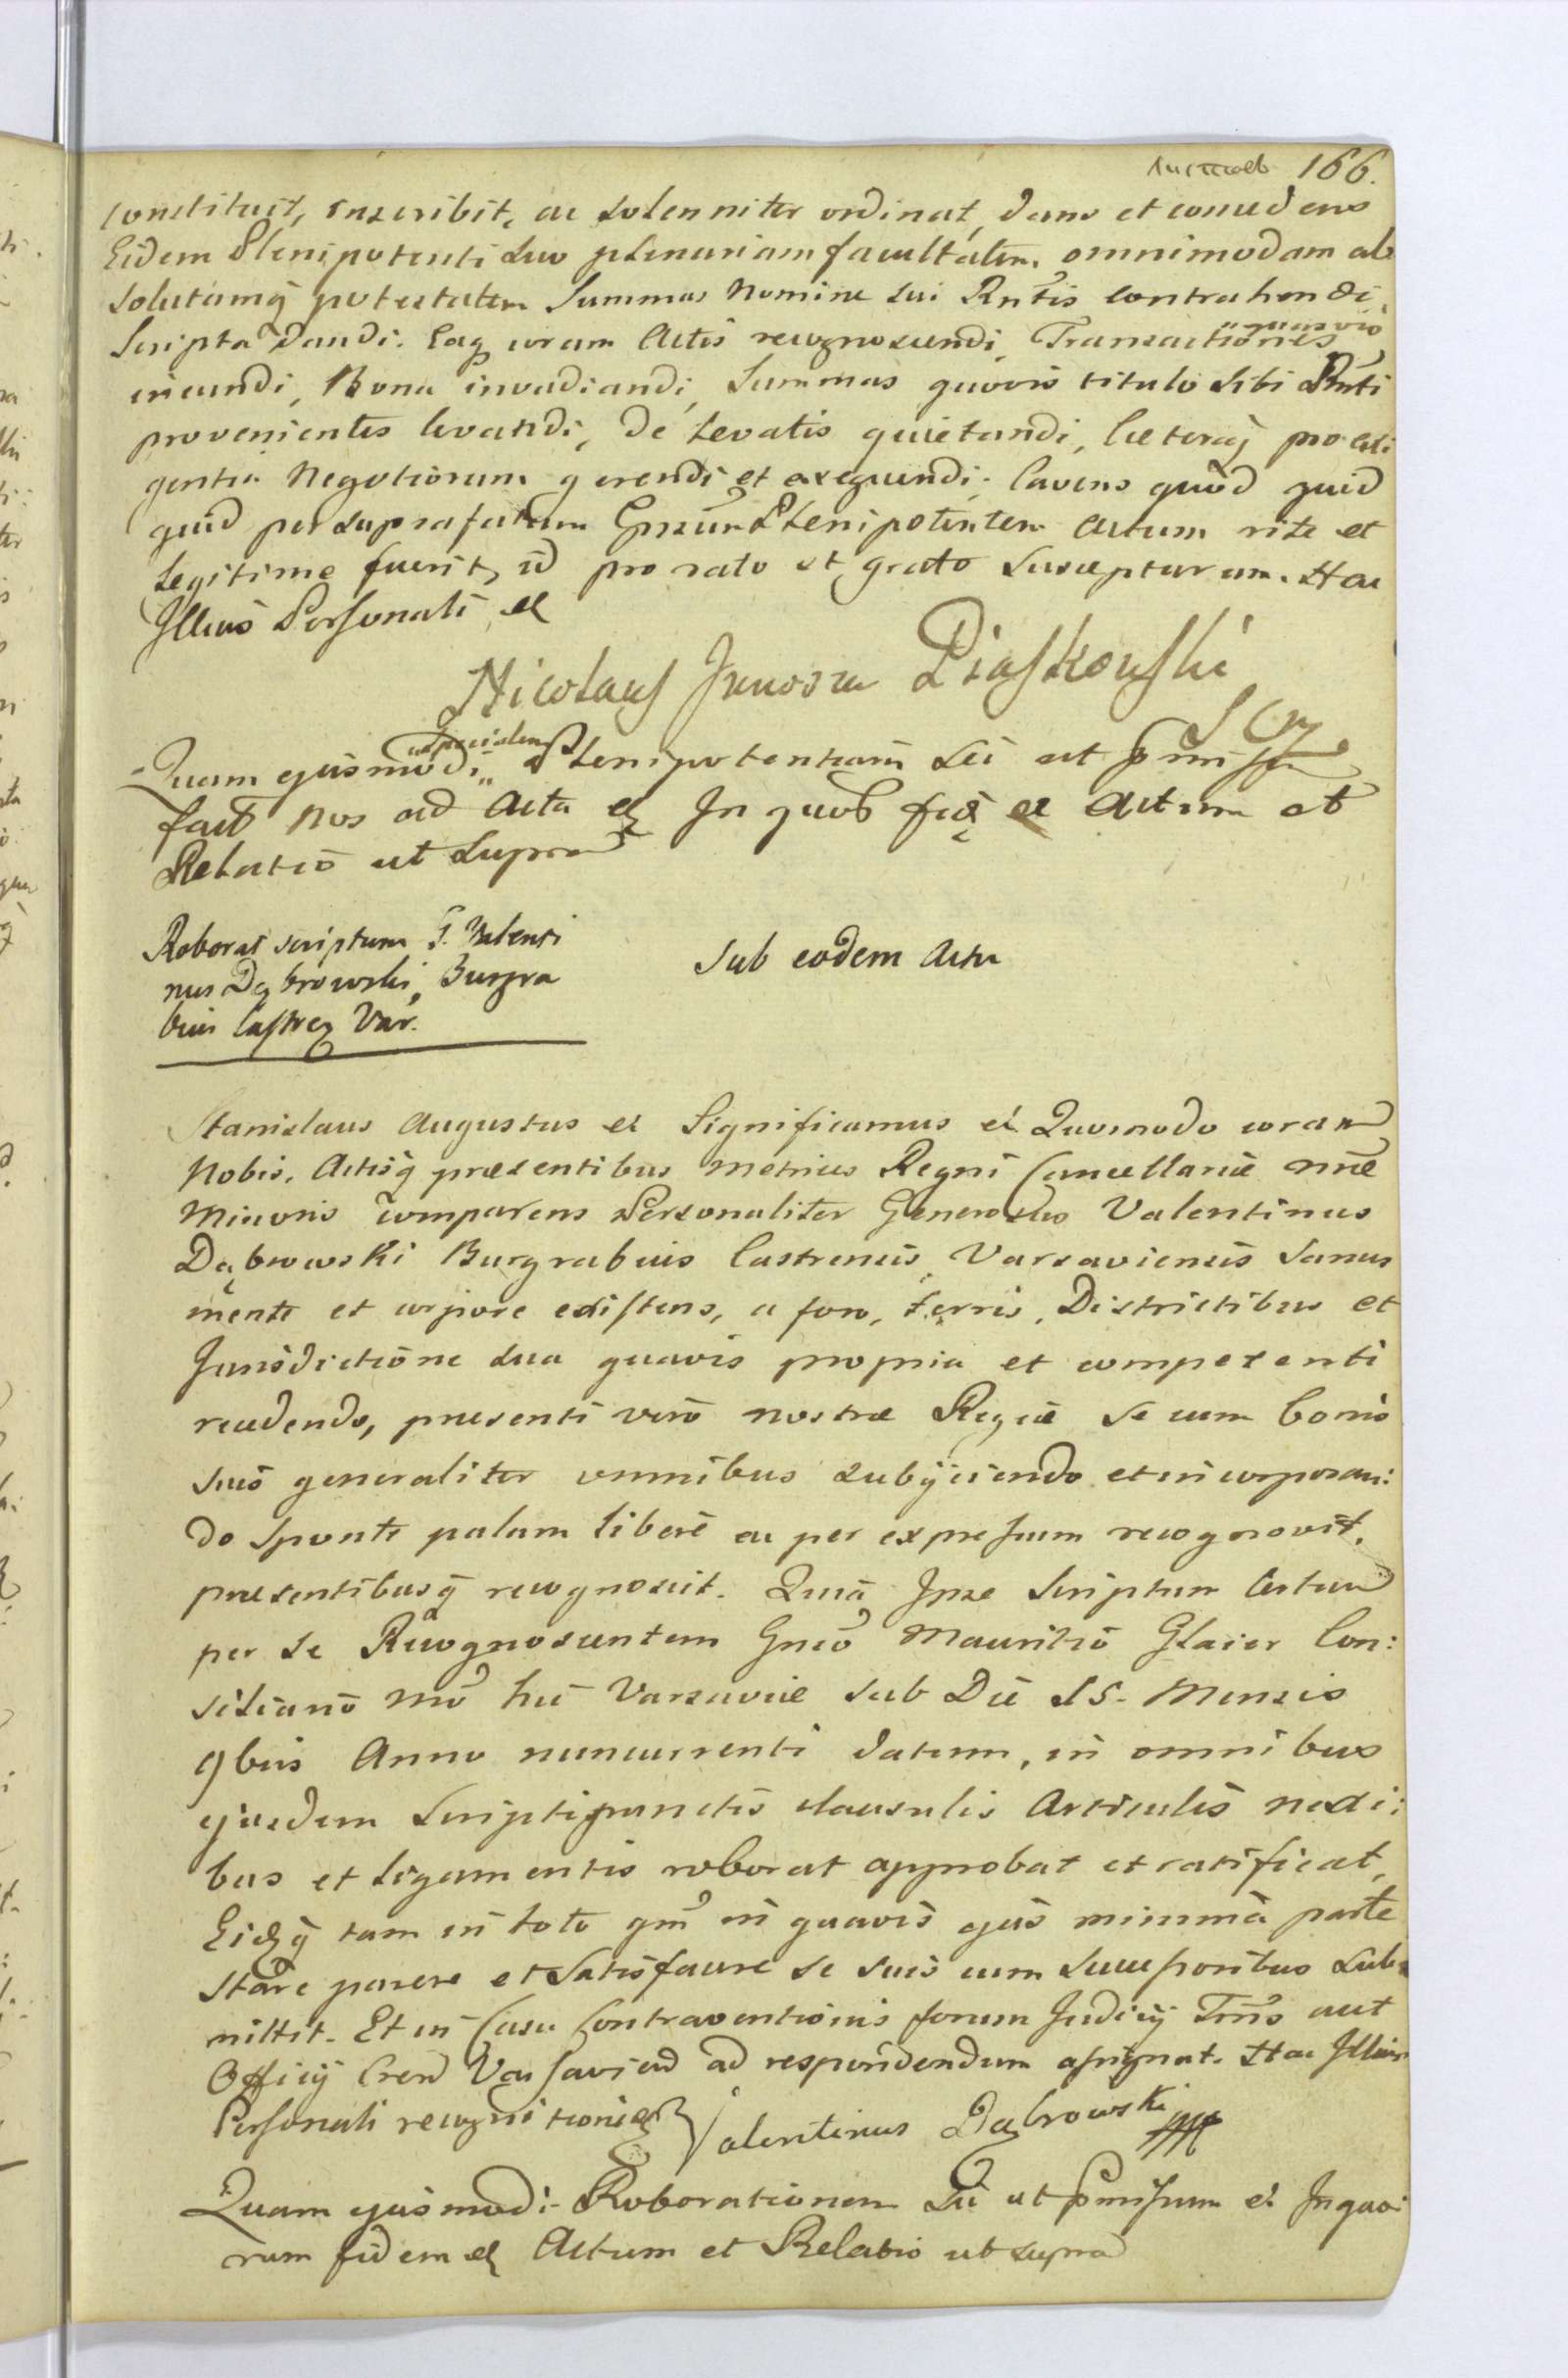 166.
constituit, inscribit, ac solenniter ordinat, dans et concedens
Eidem Plenipotenti suo plenariam facultatem, omnimodam ab
solutamq̃ potestatem Summas Nomine sui Rntis contrahendi,
Scripta dandi. Eaq̃ coram Actis recognoscendi, Transactiones quasvis
ineundi, Bona invadiandi, Summas quovis titulo Sibi Rnti
provenientes levandi, de Levatis quietandi, Cæteraq̃ pro exi
gentia Negotiorum gerendi et exequendi. Cavens quod quid
quid per suprafatum Gnsum Plenipotentem actum rite et
Legitime fuerit, id pro rato et grato suscepturum. Hac
Illius Personali, et
Nicolaus Junosza Piaskowski
Quam ejusmodi specialem Plenipotentiam Sic ut pmissa
fact Nos ad Acta et In quob fid et Actum et
Relatio ut Supra
Roborat scriptum G. Valenti
nus Dąbrowski, Burgra
bius Castren Var.
Sub eodem Actu
Stanislaus Augustus et Significamus et Quomodo coram
Nobis, Actisq̃ præsentibus Metrices Regni Cancellariæ nræ
Minoris comparens Personaliter Generosus Valentinus
Dąbrowski Burgrabius Castrensis Varsaviensis Sanus
mente et corpore existens, a foro, terris, Districtibus et
Jurisdictione sua quavis propria et competenti
recedendo, præsenti vero nostræ Regiæ se cum bonis
suis generaliter omnibus subijciendo et incorporan:
do Sponte palam libere ac per expressum recognovit,
præsentibusq̃ recognoscit. Quia Ipse Scriptum Certum
per se Recognoscentem Gnso Mauritio Glaier Con:
siliario Mo hic Varsaviæ sub Die 15. Mensis
9bris Anno nuncurrenti datum, in omnibus
ejusdem Scripti punctis clausulis Articulis nexi:
bus et ligamentis roborat approbat et ratificat,
Eidq̃ tam in toto qm in quavis ejus minima parte
Stare parere et Satisfacere se suis cum Successoribus Sub
mittit. Et in Casu Contraventionis forum Judicij Trns aut
Officij Cren Varsavien ad respondendum assignat. Hac Illius
Personali recognitione
Valentinus Dąbrowski
Quam ejusmodi Roborationem Sic ut pmissum et In quo:
rum fidem et Actum et Relatio ut supra